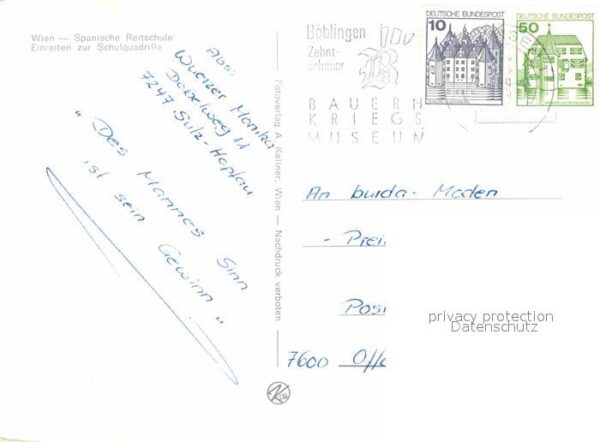 Wien — Spanische Reitschule
Einreiten zur Schulquadrille
Abs:
Wuerzer Monika
Dobelweg 11
7247 Sulz-Hopfau
"Des Mannes Sinn
ist sein Gewinn"
Fotoverlag A. Kellner, Wien — Nachdruck verboten
Böblingen
Zehnt-
scheuer
BAUERN
KRIEGS
MUSEUM
10
DEUTSCHE BUNDESPOST
50
DEUTSCHE BUNDESPOST
An burda-Moden
- Prei
Pos
7600 Offe
privacy protection
Datenschutz